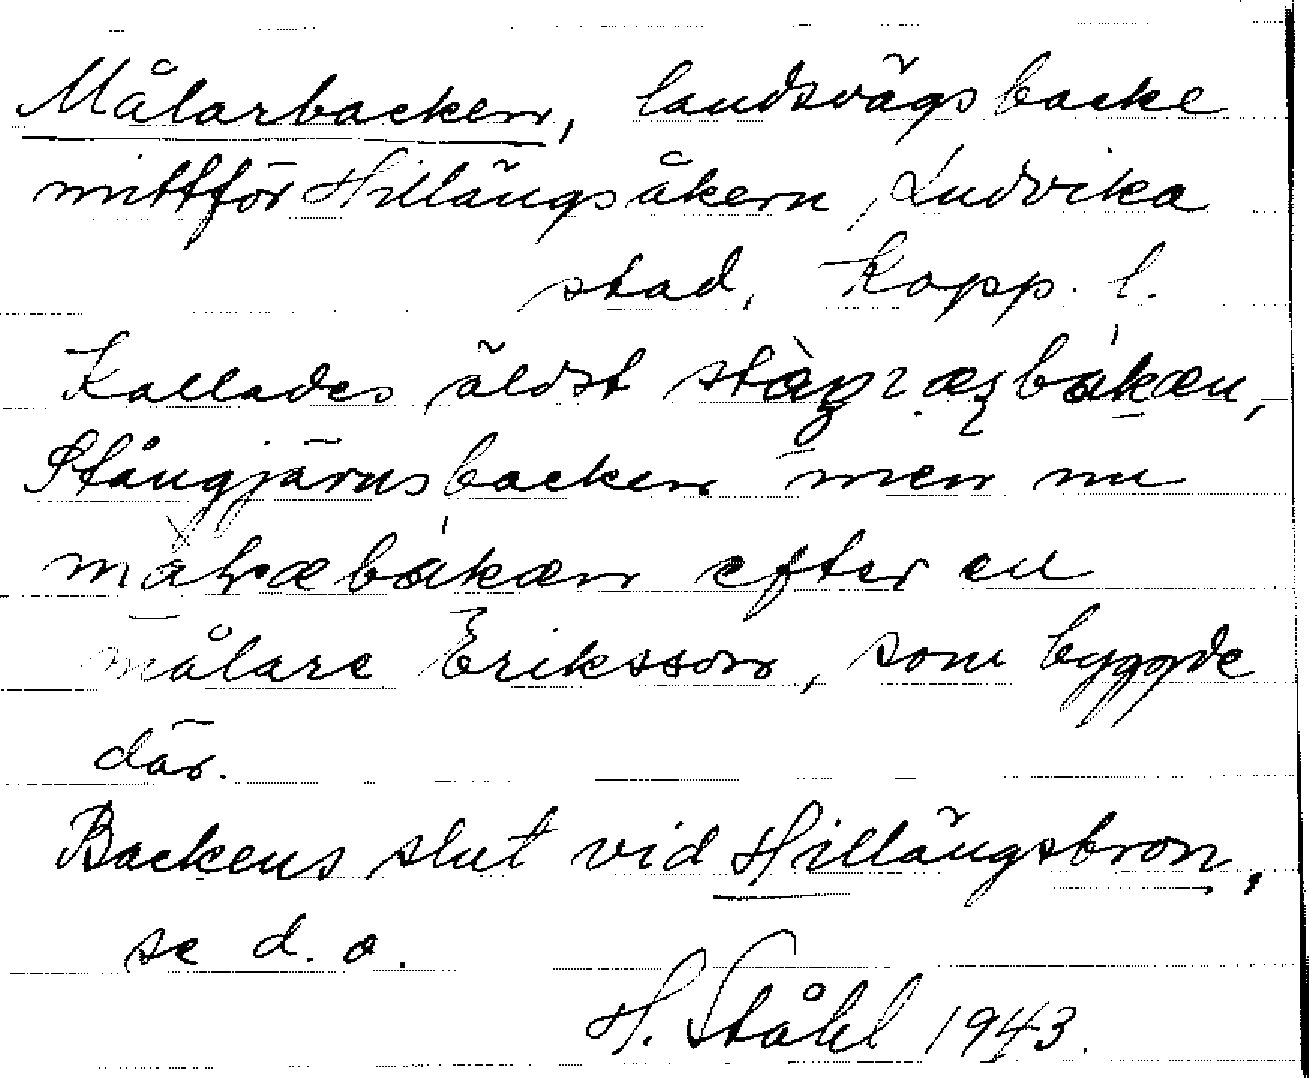 Målarbacken, landsvägsbacke
mittför Hillängsåkern, Ludvika
stad, Kopp. l.
Kallades äldst
Stångjärnsbacken men nu
målarebakæn efter en
målare Eriksson, som byggde
där.
Backens slut vid Hillängsbron,
se d. o.
H. Ståhl 1943.